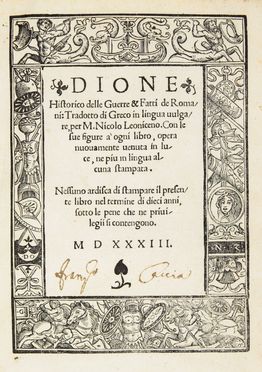 DIONE
Historico delle Guerre & Fatti de Roma/
ni: Tradotto di Greco in lingua uulga/
re, per M. Nicolo Leoniceno. Con le
sue figure à ogni libro, opera
nuouamente uenuta in lu/
ce, ne piu in lingua al/
cuna stampata.
Nessuno ardisca di stampare il presen/
te libro nel termine di dieci anni,
sotto le pene che ne priui/
legii si contengono.
M D XXXIII.